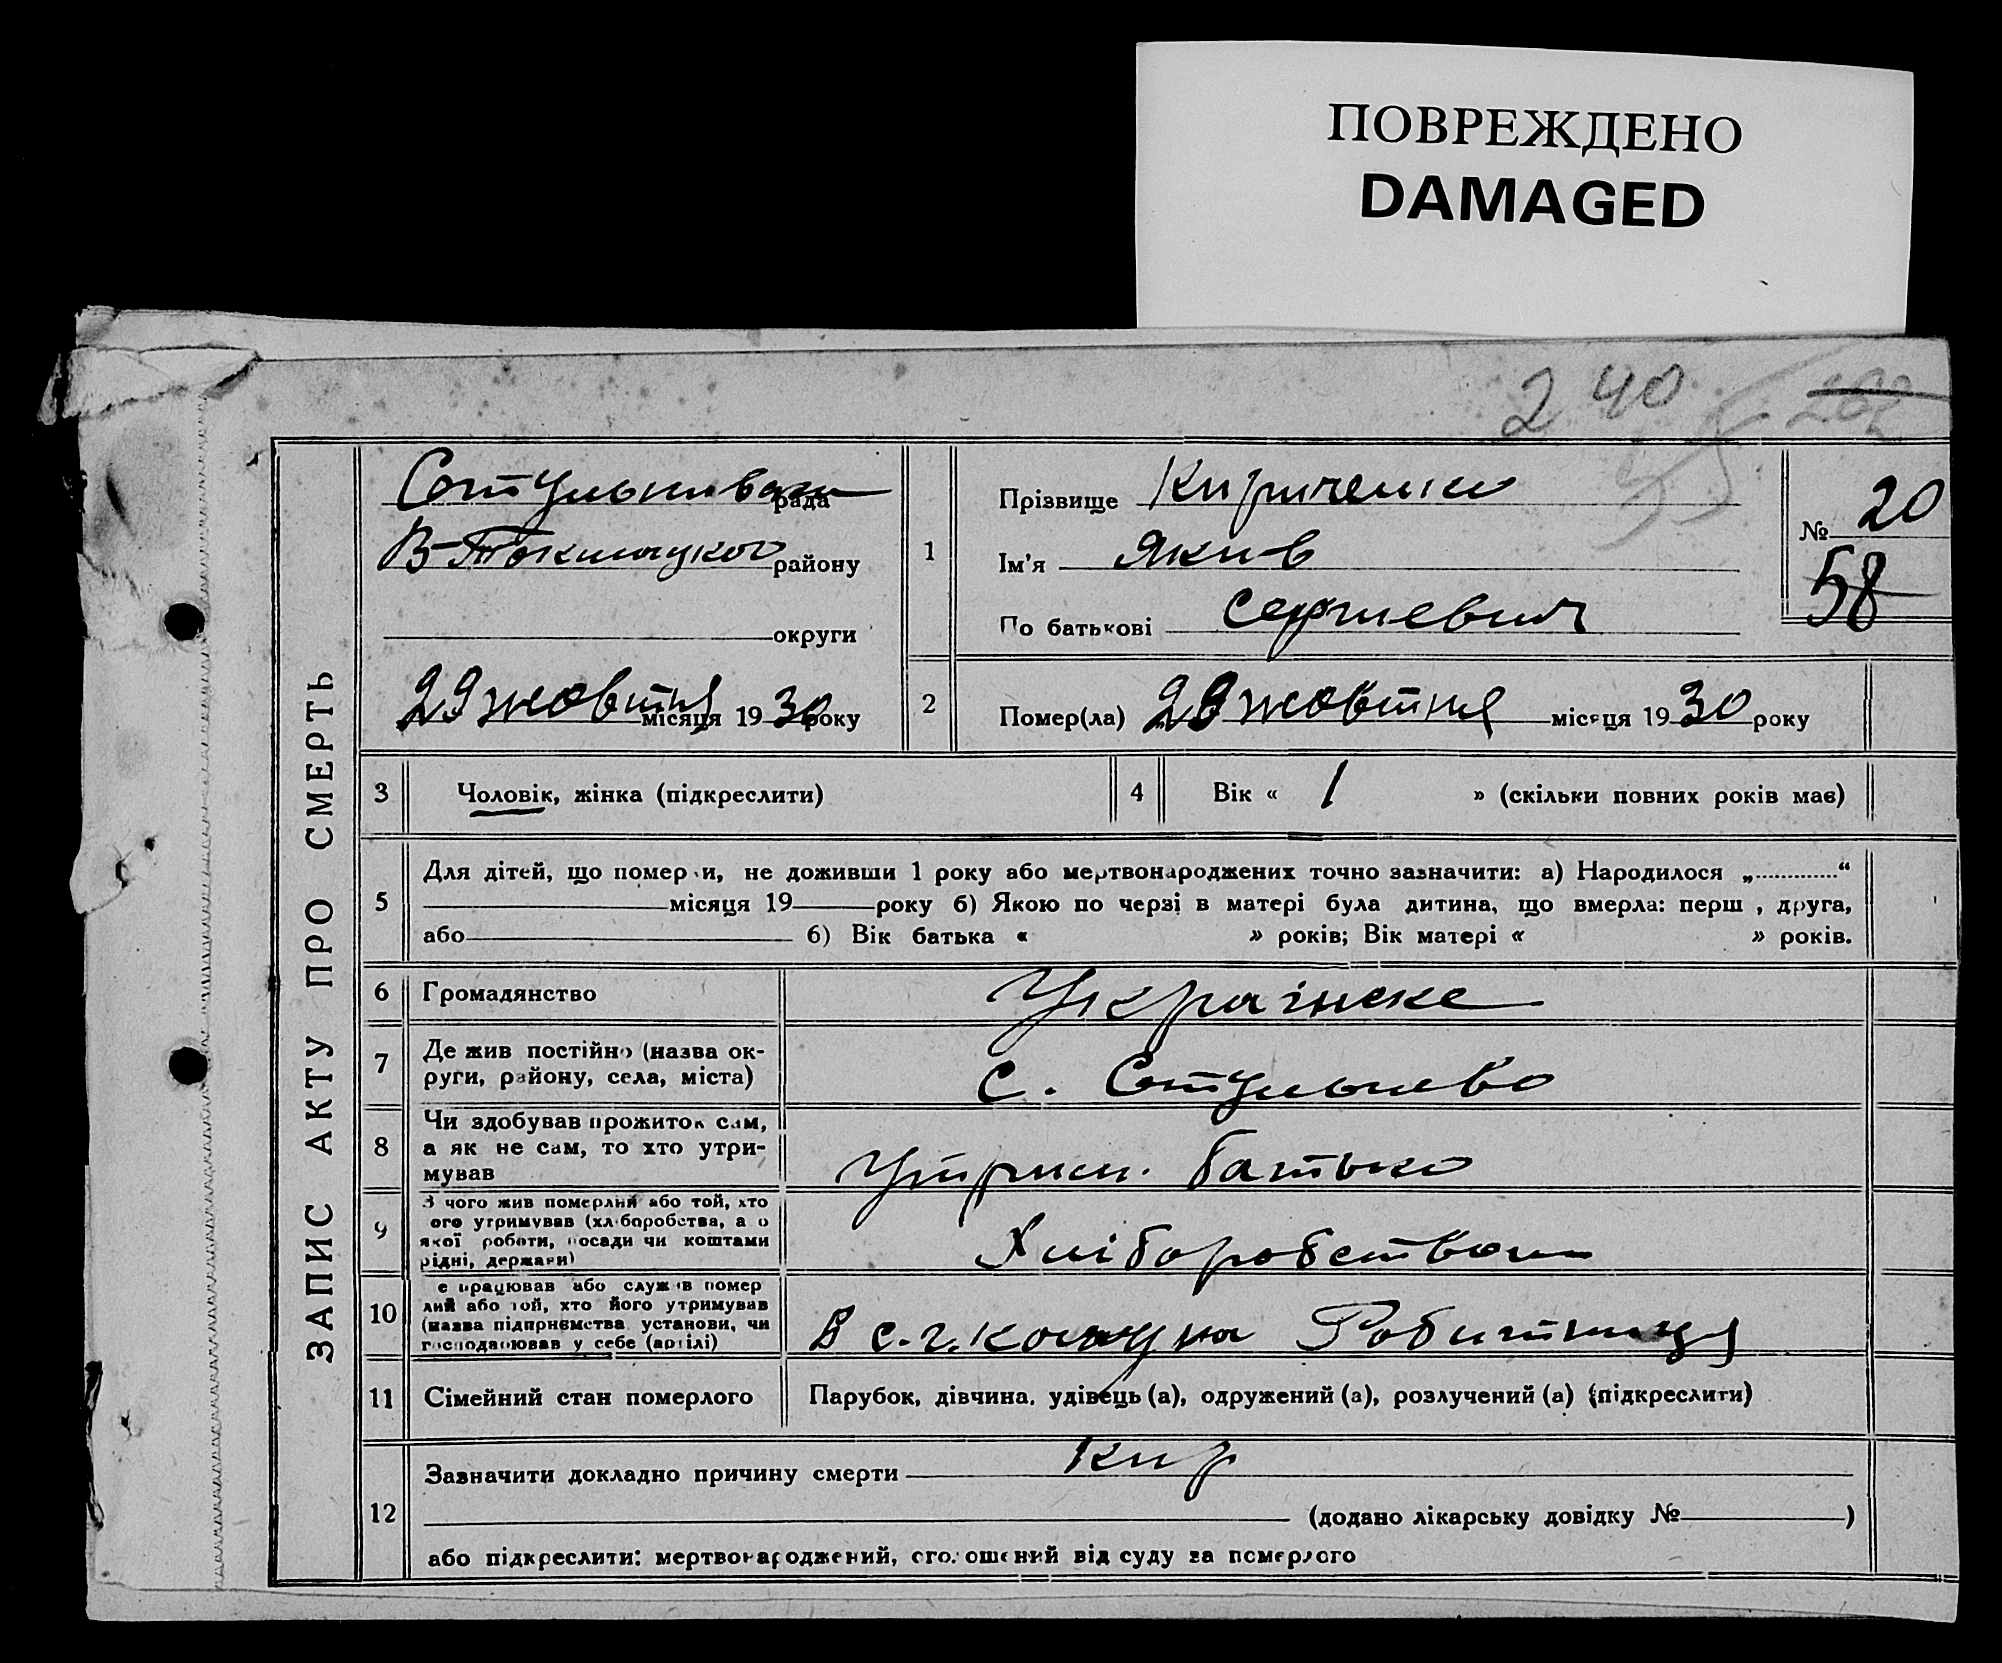 ПОВРЕЖДЕНО
DAMAGED
240 202
55
ЗАПИС АКТУ ПРО СМЕРТЬ
рада
В-Токмацкого району
округи
29 жовтня місяця 1930 року
1
Прізвище Кириченко
Ім'я Якив
По батькові Сергиевич
№ 20
58
2
Помер(ла) 28 жовтня місяця 1930 року
3 Чоловік, жінка (підкреслити)
4 Вік « 1 » (скільки повних років має)
5 Для дітей, що помер и, не доживши 1 року або мертвонароджених точно зазначити: а) Народилося „ “
місяця 19 року б) Якою по черзі в матері була дитина, що вмерла: перш , друга,
або б) Вік батька « » років; Вік матері « » років.
6 Громадянство Українске
7 Де жив постійно (назва ок-
руги, району, села, міста) с.
8 Чи здобував прожиток сам,
а як не сам, то хто утри-
мував Утрим. батько
9 З чого жив померлий або той, хто
ого утримував (хліборобства, а о
якої роботи, посади чи коштами
рідні, держави) Хліборобством
10 е працював або служив помер
лий або той, хто його утримував
(назва підприємства установи, чи
господарював у себе (артілі) В с.-г. комуна Робитныця
11 Сімейний стан померлого Парубок, дівчина, удівець (а), одружений (а), розлучений (а) (підкреслити)
12 Зазначити докладно причину смерти Кир
(додано лікарську довідку № )
або підкреслити: мертвонароджений, оголошений від суду за померлого